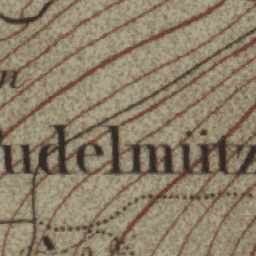 n
udelmütz